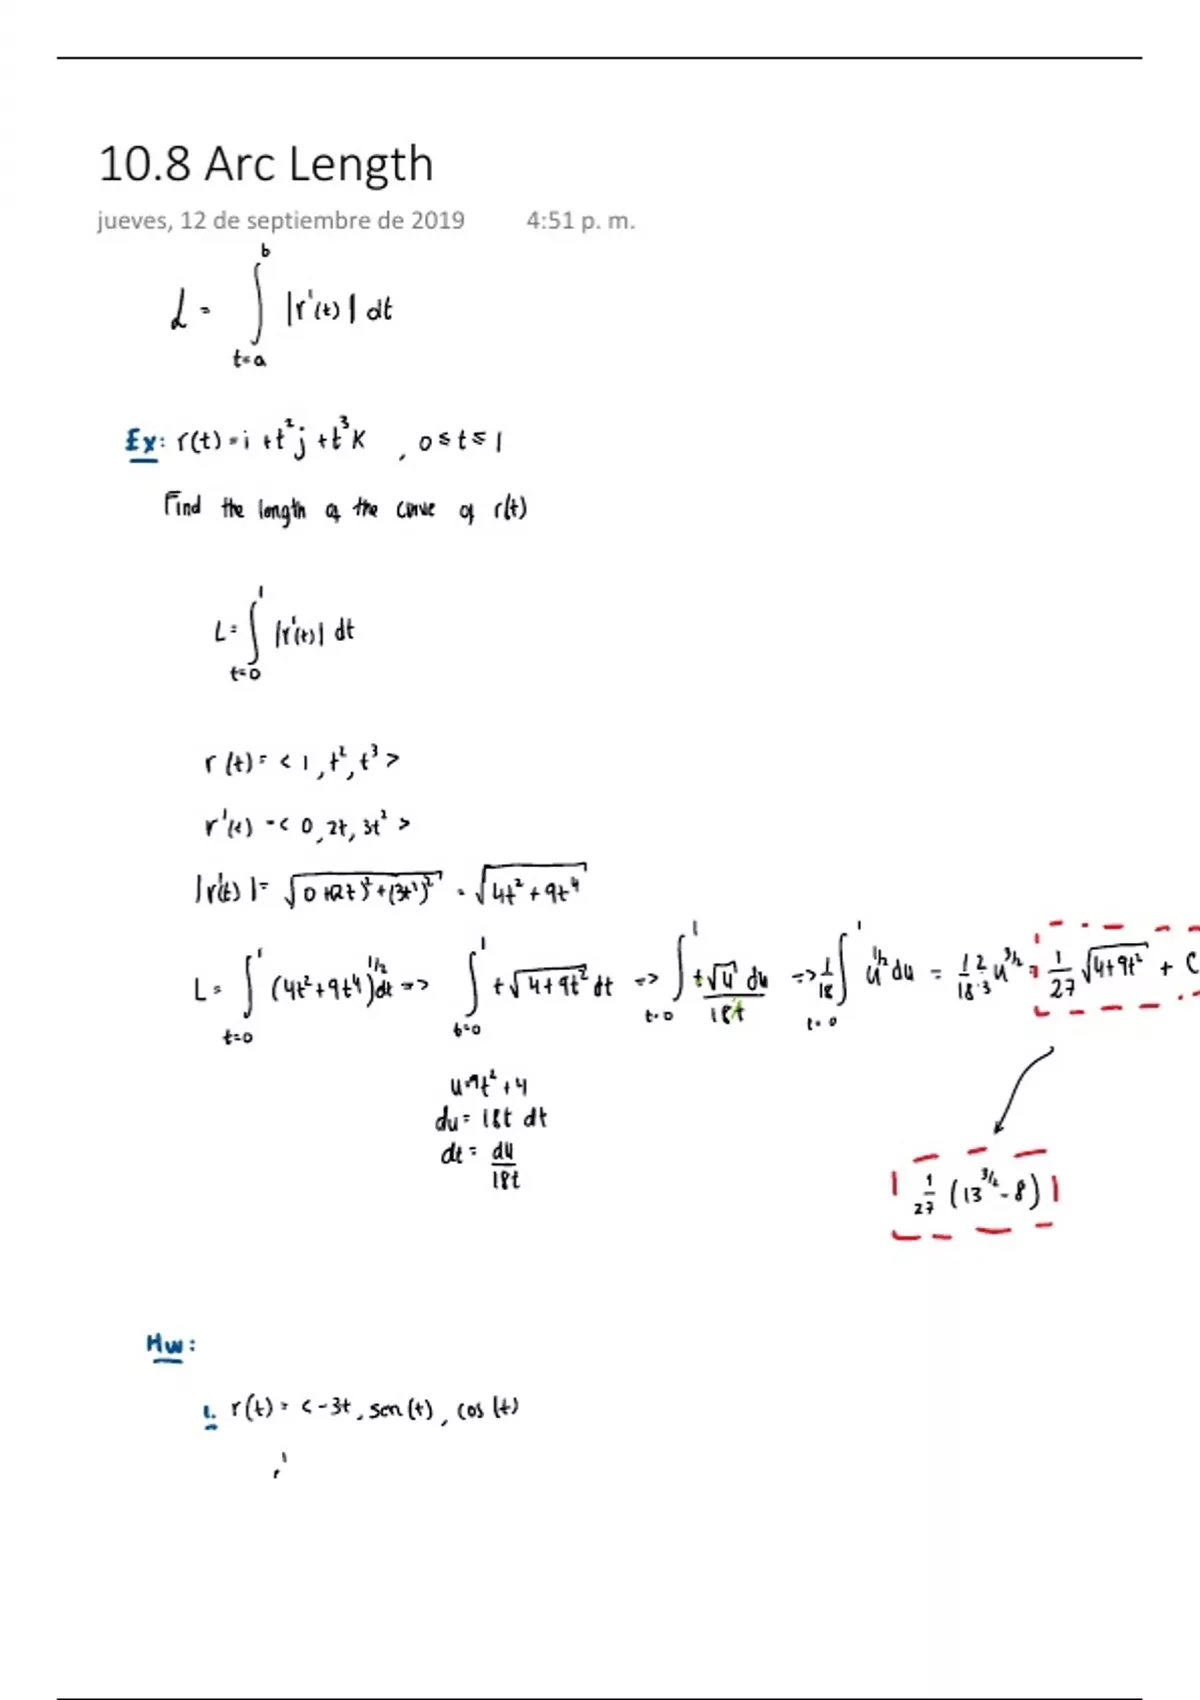 10.8 Arc Length
jueves, 12 de septiembre de 2019 4:51 p. m.
L = ∫_{t=a}^{b} |r'(t)| dt
Ex: r(t) = i + t²j + t³k , 0 ≤ t ≤ 1
Find the length of the curve of r(t)
L = ∫_{t=0}^{1} |r'(t)| dt
r(t) = < 1, t², t³ >
r'(t) = < 0, 2t, 3t² >
|r'(t)| = √(0+(2t)²+(3t²)²) = √(4t²+9t⁴)
L = ∫_{t=0}^{1} (4t²+9t⁴)^{1/2} dt => ∫_{t=0}^{1} t√(4+9t²) dt => ∫_{t=0}^{1} t√u du / 18t => 1/18 ∫_{t=0}^{1} u^{1/2} du = 1/18 · 2/3 u^{3/2} = 1/27 √(4+9t²) + C
u=9t²+4
du = 18t dt
dt = du/18t
1/27 (13^{3/2} - 8)
Hw:
1. r(t) = < -3t, sen(t), cos(t)
r'